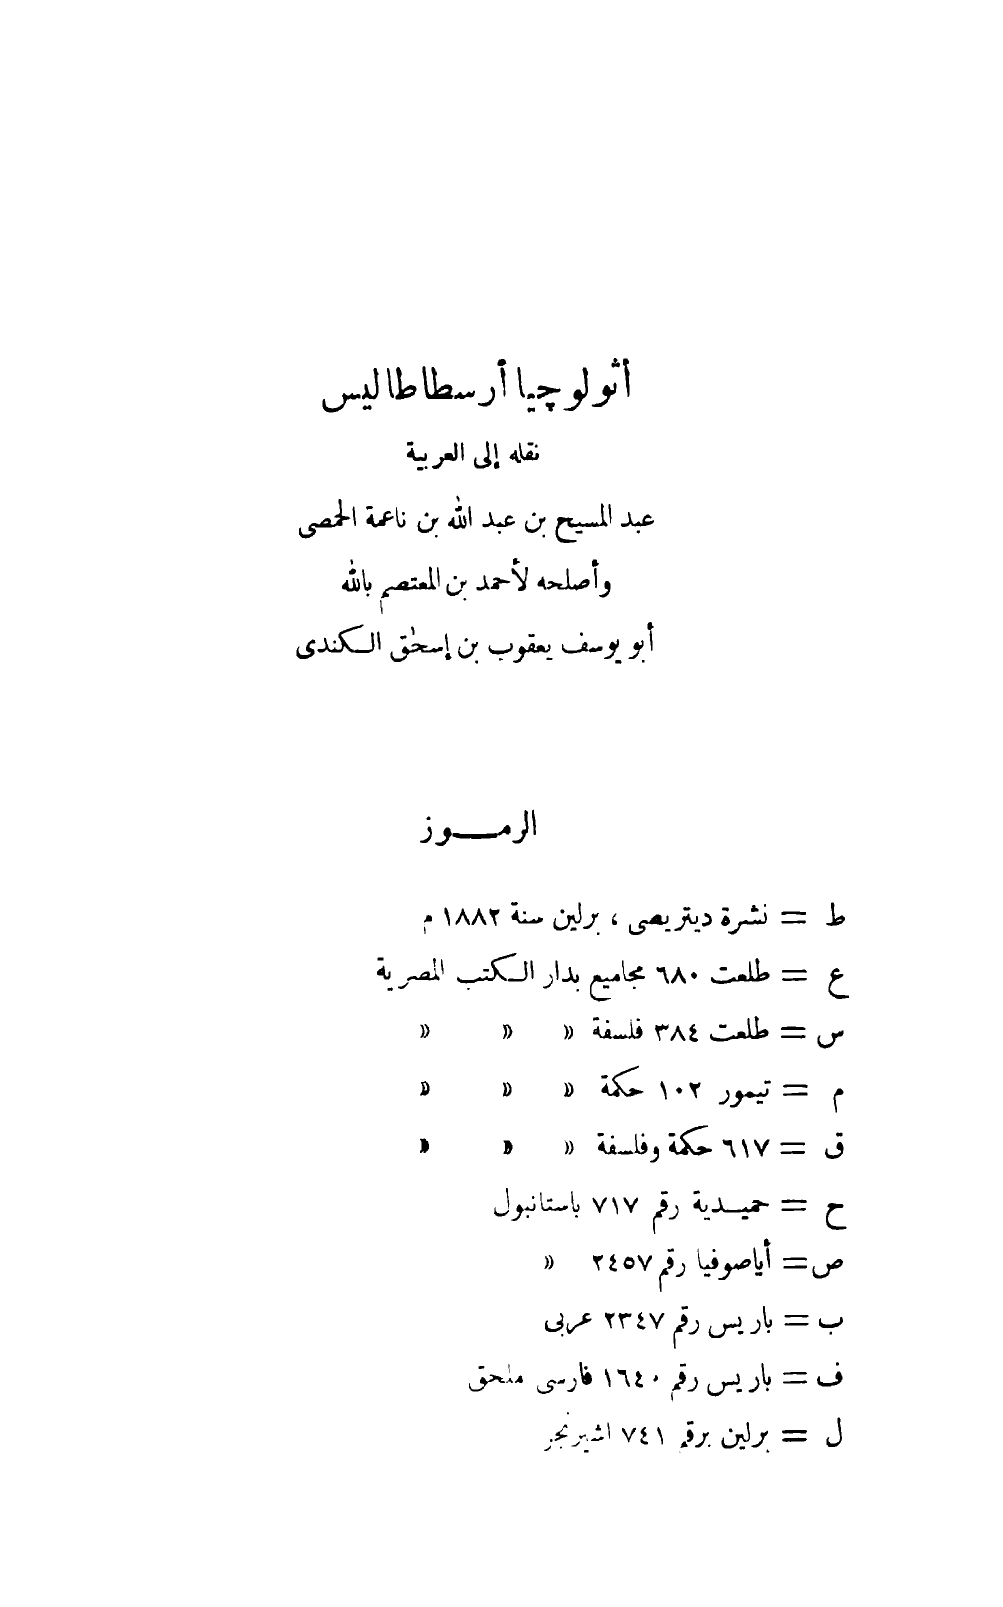 أثولوچيا أرسطاطاليس
نقله إلى العربية
عبد المسيح بن عبد الله بن ناعمة الحمصى
وأصلحه لأحمد بن المعتصم بالله
أبو يوسف يعقوب بن إسحٰق الكندى
الرمـــوز
ط = نشرة ديتريصى ، برلين سنة ١٨٨٢ م
ع = طلعت ٦٨٠ مجاميع بدار الكتب المصرية
س = طلعت ٣٨٤ فلسفة » » »
م = تيمور ١٠٢ حكمة » » »
ق = ٦١٧ حكمة وفلسفة » » »
ح = حميـدية رقم ٧١٧ باستانبول
ص = أياصوفيا رقم ٢٤٥٧ »
ب = باريس رقم ٢٣٤٧ عربى
ف = باريس رقم ١٦٤٠ فارسى ملحق
ل = برلين برقم ٧٤١ اشپرنجر